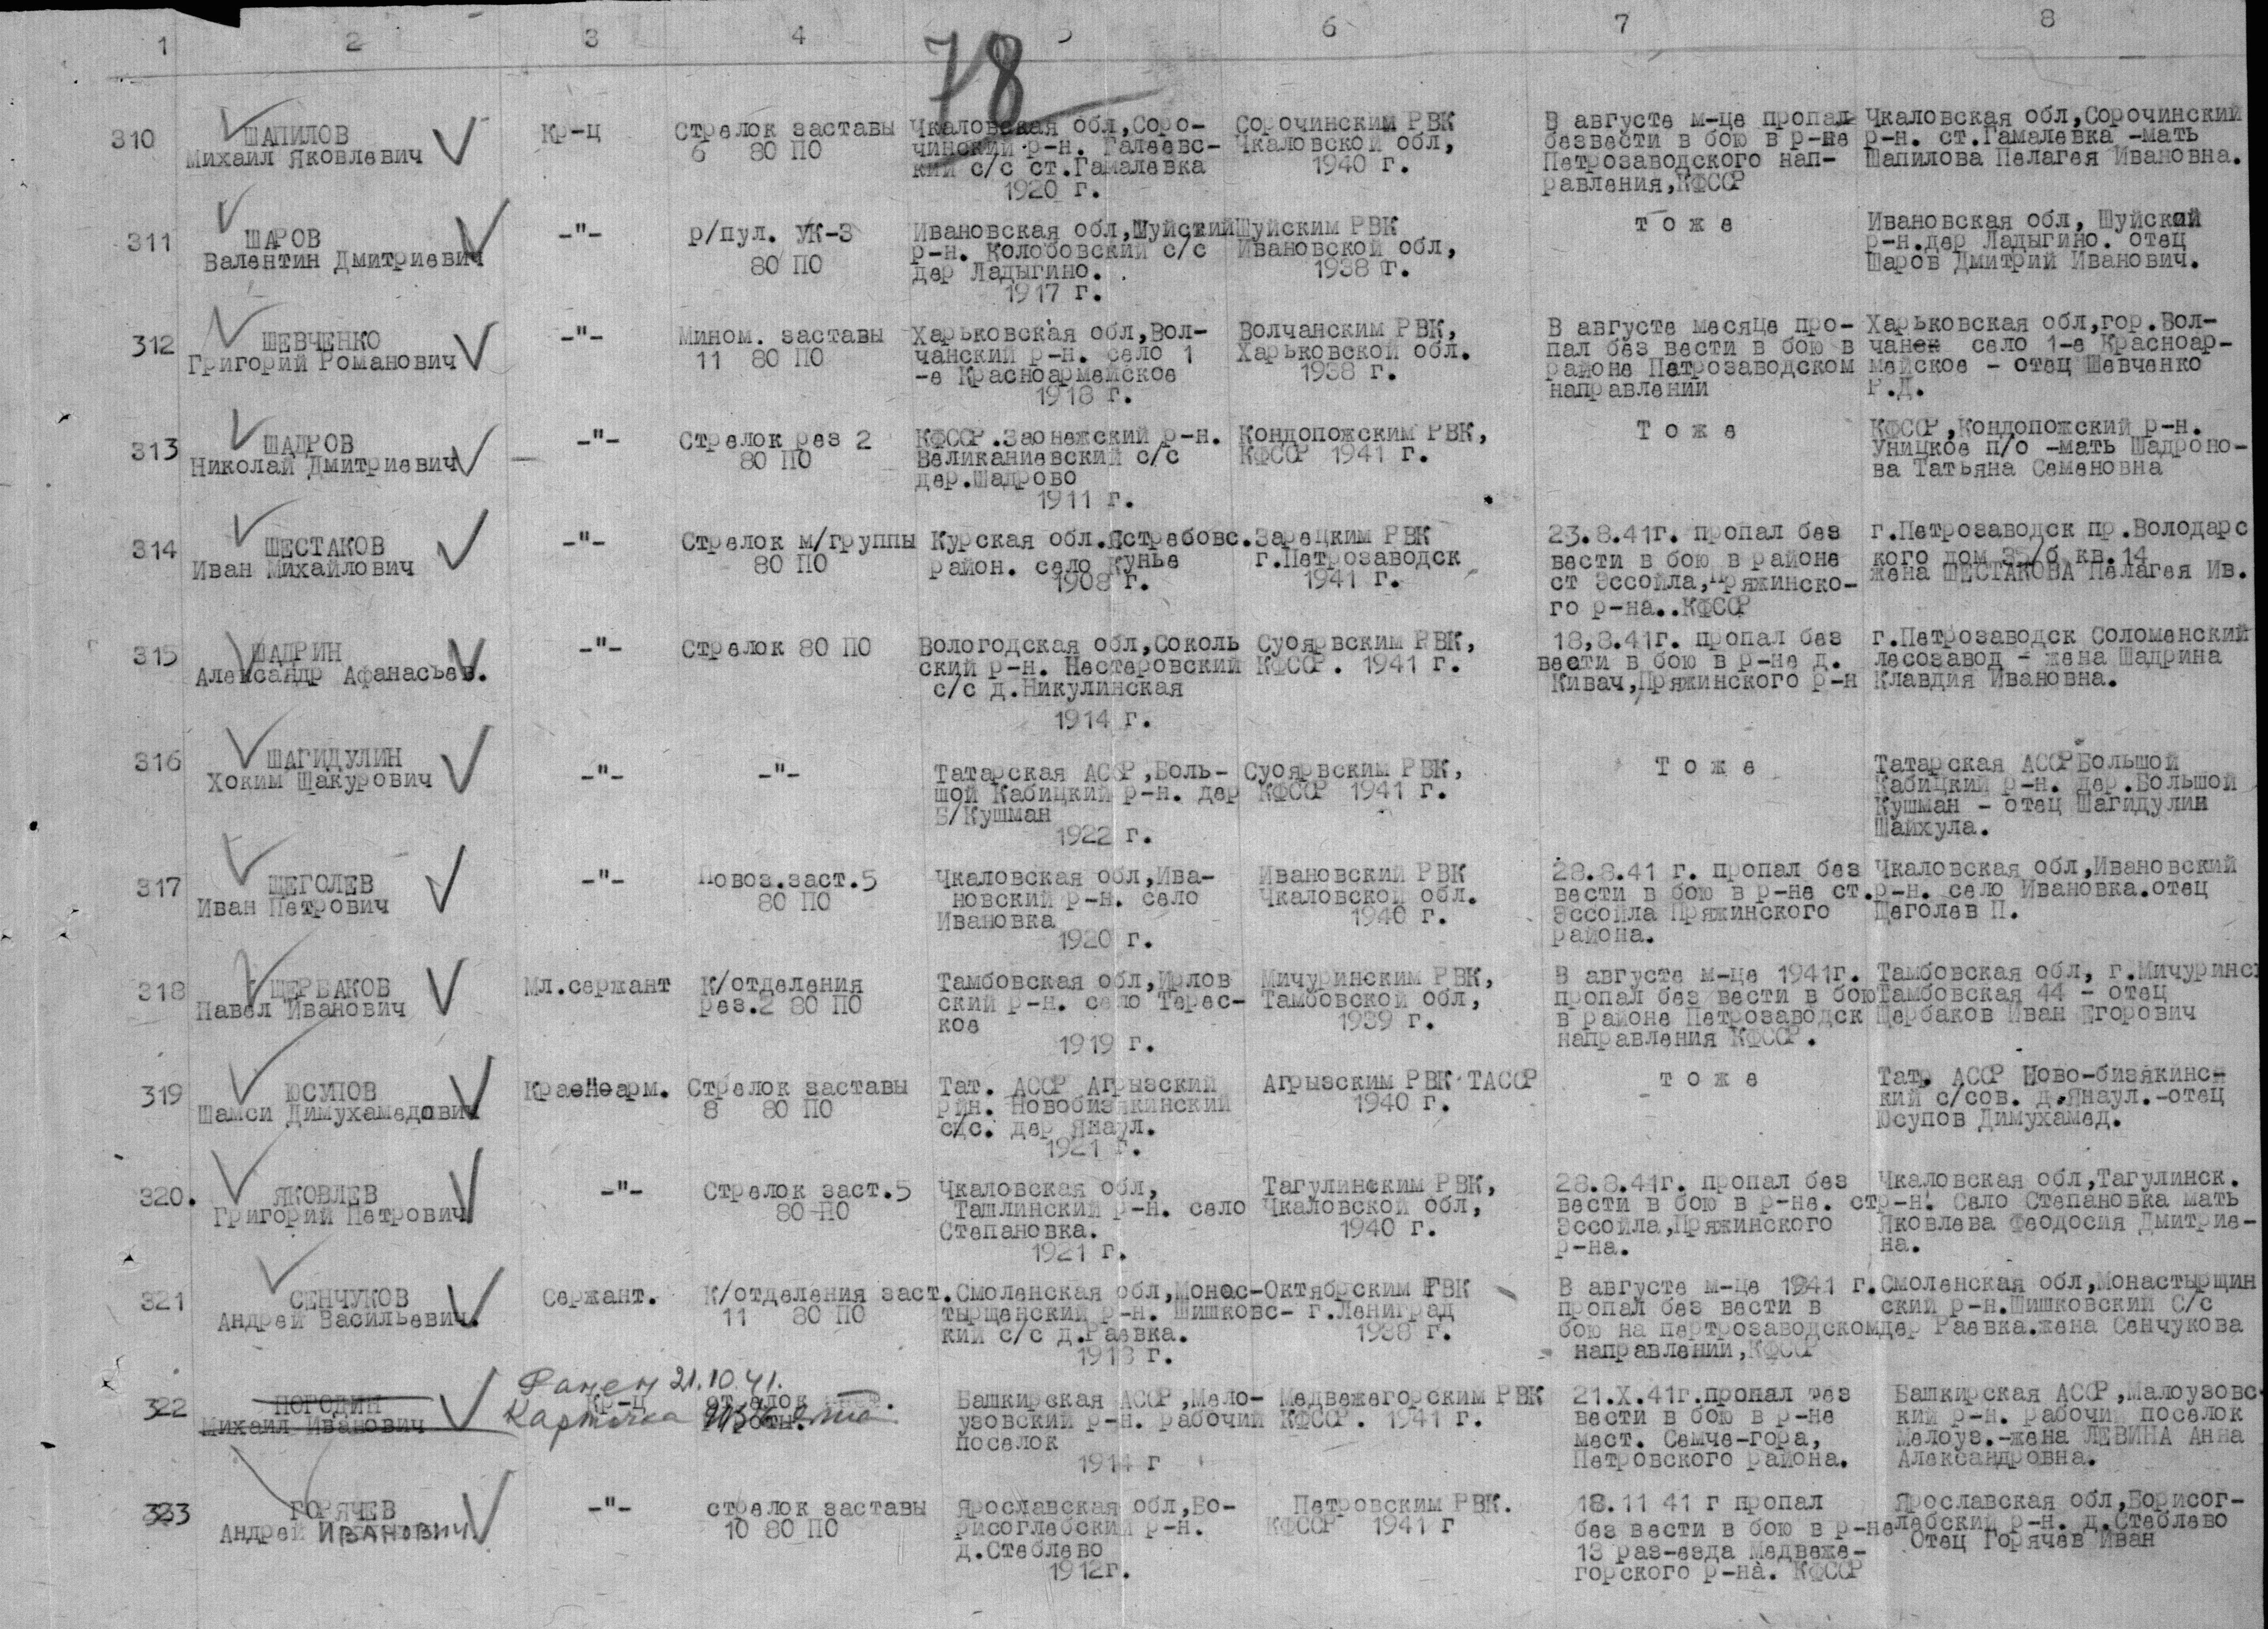 1 2 3 4 5 6 7 8
78
310
ШАПИЛОВ
Михаил Яковлевич
Кр-ц
Стрелок заставы
6 80 ПО
Чкаловская обл,Соро-
чинский р-н. Галеевс-
кий с/с ст.Гамалевка
1920 г.
Сорочинским РВК
Чкаловской обл,
1940 г.
В августе м-це пропал
безвести в бою в р-не
Петрозаводского нап-
равления,КФССР
Чкаловская обл,Сорочинский
р-н. ст.Гамалевка -мать
Шапилова Пелагея Ивановна.
311
ШАРОВ
Валентин Дмитриевич
-"-
р/пул. УК-3
80 ПО
Ивановская обл,Шуйский
р-н. Колобовский с/с
дер Ладыгино.
1917 г.
Шуйским РВК
Ивановской обл,
1938 г.
т о ж е
Ивановская обл, Шуйский
р-н.дер Ладыгино. отец
Шаров Дмитрий Иванович.
312
ШЕВЧЕНКО
Григорий Романович
-"-
Мином. заставы
11 80 ПО
Харьковская обл,Вол-
чанский р-н. село 1
-е Красноармейское
1918 г.
Волчанским РВК,
Харьковской обл.
1938 г.
В августе месяце про-
пал без вести в бою в
районе Петрозаводском
направлении
Харьковская обл,гор.Вол-
чанек село 1-е Красноар-
мейское - отец Шевченко
Р.Д.
313
ШАДРОВ
Николай Дмитриевич
-"-
Стрелок рез 2
80 ПО
КФССР.Заонежский р-н.
Великаниевский с/с
дер.Шадрово
1911 г.
Кондопожским РВК,
КФССР 1941 г.
Т о ж е
КФССР,Кондопожский р-н.
Уницкое п/о -мать Шадроно-
ва Татьяна Семеновна
314
ШЕСТАКОВ
Иван Михайлович
-"-
Стрелок м/группы
80 ПО
Курская обл.Ястребовс.
район. село Кунье
1908 г.
Зарецким РВК
г.Петрозаводск
1941 г.
23.8.41г. пропал без
вести в бою в районе
ст Эссойла,Пряжинско-
го р-на..КФССР
г.Петрозаводск пр.Володарс
кого дом 35/б кв.14
жена ШЕСТАКОВА Пелагея Ив.
315
ШАДРИН
Александр Афанасьев.
-"-
Стрелок 80 ПО
Вологодская обл,Соколь
ский р-н. Нестеровский
с/с д.Никулинская
1914 г.
Суоярвским РВК,
КФССР. 1941 г.
18,8.41г. пропал без
вести в бою в р-не д.
Кивач,Пряжинского р-н
г.Петрозаводск Соломенский
лесозавод - жена Шадрина
Клавдия Ивановна.
316
ШАГИДУЛИН
Хоким Шакурович
-"-
-"-
Татарская АССР,Боль-
шой Кабицкий р-н. дер
Б/Кушман
1922 г.
Суоярвским РВК,
КФССР 1941 г.
Т о ж е
Татарская АССР Большой
Кабицкий р-н. дер.Большой
Кушман - отец Шагидулин
Шайхула.
317
ЩЕГОЛЕВ
Иван Петрович
-"-
Повоз.заст.5
80 ПО
Чкаловская обл,Ива-
новский р-н. село
Ивановка
1920 г.
Ивановский РВК
Чкаловской обл.
1940 г.
28.8.41 г. пропал без
вести в бою в р-не ст.
Эссойла Пряжинского
района.
Чкаловская обл,Ивановский
р-н. село Ивановка.отец
Щеголев П.
318
ЩЕРБАКОВ
Павел Иванович
Мл.сержант
К/отделения
рез.2 80 ПО
Тамбовская обл,Ирлов
ский р-н. село Терес-
кое
1919 г.
Мичуринским РВК,
Тамбовской обл,
1939 г.
В августе м-це 1941г.
пропал без вести в бою
в районе Петрозаводск
направления КФССР.
Тамбовская обл, г.Мичуринск
Тамбовская 44 - отец
Щербаков Иван Егорович
319
ЮСУПОВ
Шамси Димухамедович
Красноарм.
Стрелок заставы
8 80 ПО
Тат. АССР Агрызский
рйн. Новобизякинский
с/с. дер Янаул.
1921 г.
Агрызским РВК ТАССР
1940 г.
т о ж е
Тат. АССР Ново-бизякинс-
кий с/сов. д.Янаул.-отец
Юсупов Димухамед.
320.
ЯКОВЛЕВ
Григорий Петрович
-"-
Стрелок заст.5
80 ПО
Чкаловская обл,
Ташлинский р-н. село
Степановка.
1921 г.
Тагулинским РВК,
Чкаловской обл,
1940 г.
28.8.41г. пропал без
вести в бою в р-не. ст
Эссойла,Пряжинского
р-на.
Чкаловская обл,Тагулинск.
р-н. Село Степановка мать
Яковлева Феодосия Дмитрие-
на.
321
СЕНЧУКОВ
Андрей Васильевич.
Сержант.
К/отделения заст.
11 80 ПО
Смоленская обл,Монас-
тырщенский р-н. Шишковс-
кий с/с д.Раевка.
1918 г.
Октябрским РВК
г.Лениград
1938 г.
В августе м-це 1941 г.
пропал без вести в
бою на пертрозаводском
направлении,КФССР
Смоленская обл,Монастырщин
ский р-н.Шишковский С/с
дер Раевка.жена Сенчукова
322
ПОГОДИН
Михаил Иванович
Ранен 21.10.41.
Кр-ц
Карточка
стрелок
Башкирская АССР,Мело-
узовский р-н. рабочий
поселок
1914 г
Медвежегорским РВК
КФССР. 1941 г.
21.Х.41г.пропал без
вести в бою в р-не
мест. Семче-гора,
Петровского района.
Башкирская АССР,Малоузовс-
кий р-н. рабочий поселок
Мелоуз.-жена ЛЕВИНА Анна
Александровна.
323
ГОРЯЧЕВ
Андрей ИВАНОВИЧ
-"-
стрелок заставы
10 80 ПО
Ярославская обл,Бо-
рисоглебский р-н.
д.Стеблево
1912г.
Петровским РВК.
КФССР 1941 г
18.11 41 г пропал
без вести в бою в р-не
13 раз-езда Медвеже-
горского р-на. КФССР
Ярославская обл,Борисог-
лебский р-н. д.Стеблево
Отец Горячев Иван